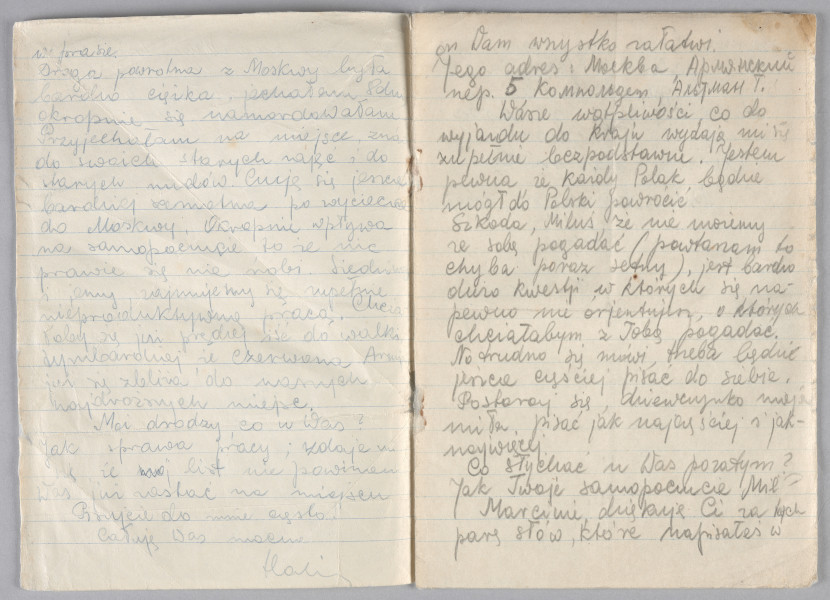 w prasie.
Droga powrotna z Moskwy była
bardzo ciężka, jechałam
okropnie się namordowałam
Przyjechałam na miejsce,
do swoich starych zajęć i do
starych nudów. Czuję się jeszcze
bardziej samotna po wycieczce
do Moskwy. Okropnie wpływa
na samopoczucie to że nic
prawie się nie robi. Siedzimy
i jemy, zajmujemy się zupełnie
nieproduktywną pracą. Chcia
łoby się już prędzej iść do walki
tymbardziej że Czerwona Armja
już się zbliża do naszych
najdroższych miejsc.
Moi drodzy co u Was?
Jak sprawa pracy, zdaje mi
się że mój list nie powinien
Was już zastać na miejscu
Piszcie do mnie często!
Całuję Was mocno
on Wam wszystko załatwi.
Jego adres: Москва, Армянский
пер. 5 Комнольдет, Альтман Т.
Wasze wątpliwości, co do
wyjazdu do kraju wydają mi się
zupełnie bezpodstawne. Jestem
pewna że każdy Polak będzie
mógł do Polski powrócić.
Szkoda, Miluś, że nie możemy
ze sobą pogadać (powtarzam to
chyba poraz setny), jest bardzo
dużo kwestji, w których się na-
pewno nie orjentujesz, o których
chciałabym z Tobą pogadać.
No trudno się mówi, trzeba będzie
jeszcze częściej pisać do siebie.
Postaraj się, dziewczynko moja
miła, pisać jak najczęściej i jak-
najwięcej.
Co słychać u Was pozatym?
Jak Twoje samopoczucie Mil
Marcinie, dziękuję Ci za tych
parę słów, które napisałeś w